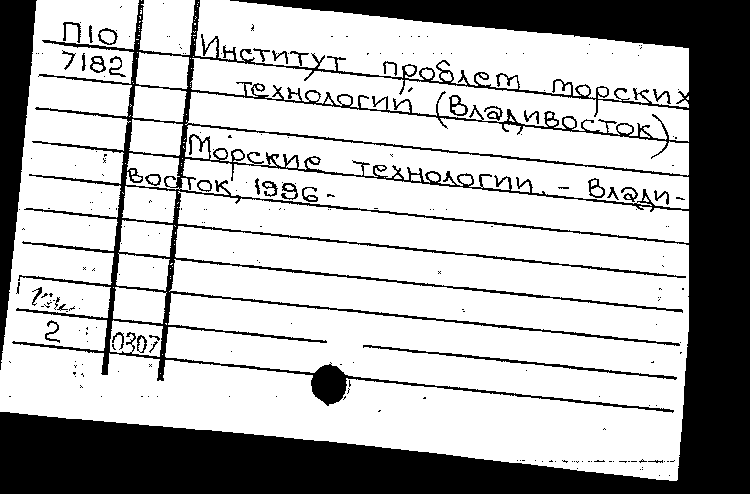 П10
7182
Институт проблем морских
технологий (Владивосток).
Морские технологии. - Влади-
восток, 1996-
2
0307